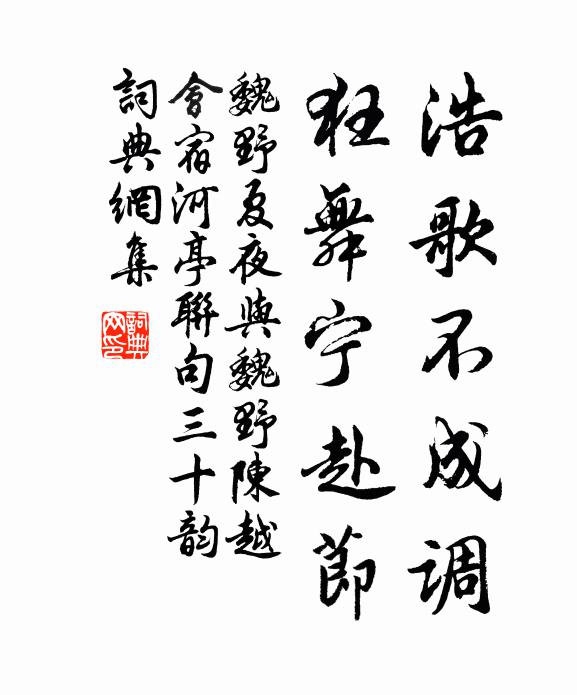 浩歌不成调
狂舞宁赴節
魏野夏夜與魏野陳越
會宿河亭聯句三十韵
詞典網集
詞典
网印